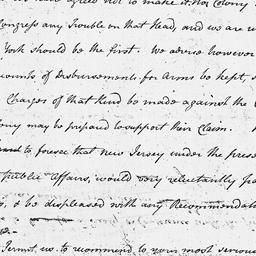 agreed not to make it. No Colony
Congress any Trouble on that Head, and we are
York should be the first. We advise however
accounts of disbursements for Arms be kept,
Charges of that kind be made against the
may be prepared to support their Claim.
to foresee that new Jersey under the
public affairs, would very reluctantly
& be displeased with any Recommendat
Permit us to recommend to your most serious